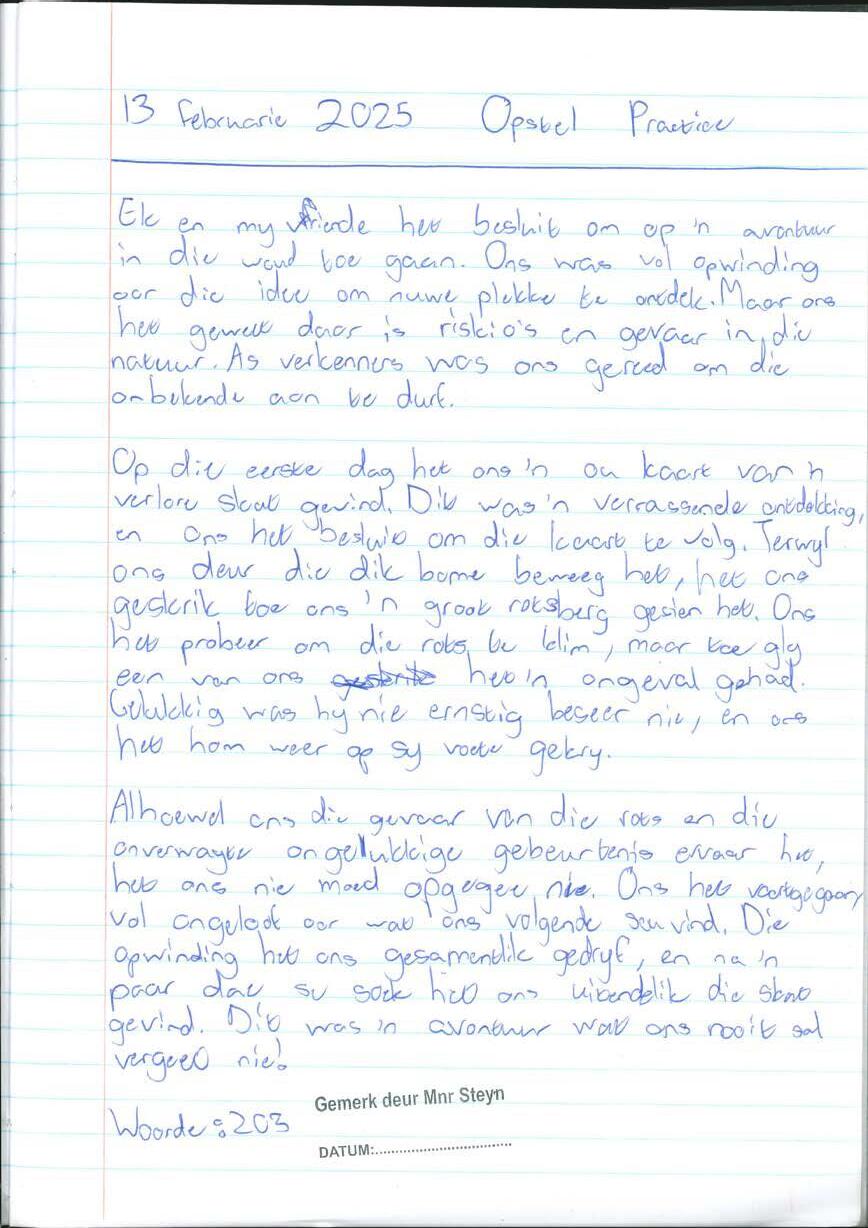 13 Februarie 2025 Opstel Practice
Ek en my vriende het besluit om op 'n avontuur
in die woud toe gaan. Ons was vol opwinding
oor die idee om nuwe plekke te ontdek. Maar ons
het geweet daar is riskio's en gevaar in die
natuur. As verkenners was ons gereed om die
onbekende aan te durf.
Op die eerste dag het ons 'n ou kaart van 'n
verlore skat gevind. Dit was 'n verrassende ontdekking,
en ons het besluit om die kaart te volg. Terwyl
ons deur die dik bome beweeg het, het ons
geskrik toe ons 'n groot rotsberg gesien het. Ons
het probeer om die rots te klim, maar toe gly
een van ons het 'n ongeval gehad.
Gelukkig was hy nie ernstig beseer nie, en ons
het hom weer op sy voete gekry.
Alhoewel ons die gevaar van die rots en die
onverwagte ongelukkige gebeurtenis ervaar het,
het ons nie moed opgegee nie. Ons het voortgegaan,
vol ongeloof oor wat ons volgende sou vind. Die
opwinding het ons gesamentlik gedryf, en na 'n
paar dae se soek het ons uiteindelik die skat
gevind. Dit was 'n avontuur wat ons nooit sal
vergeet nie!
Woorde: 203
Gemerk deur Mnr Steyn
DATUM: